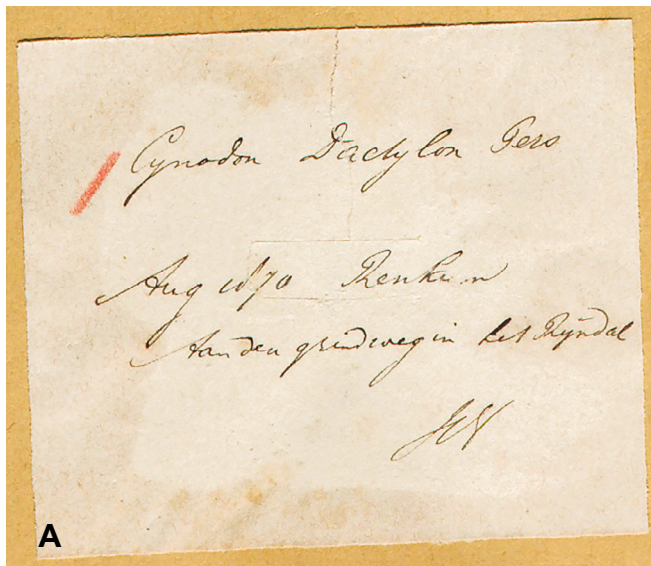 Cynodon Dactylon Pers
Aug 1870 Renkum
Aan den grindweg in het Rijndal
A